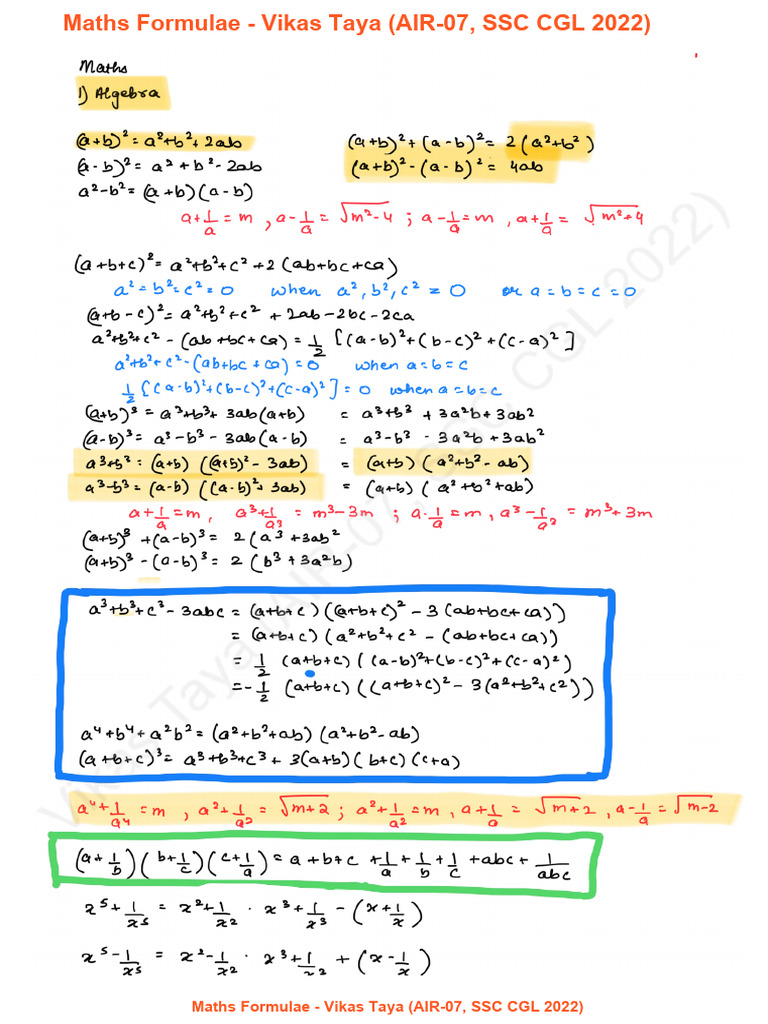 Maths Formulae - Vikas Taya (AIR-07, SSC CGL 2022)
Maths
1) Algebra
(a+b)² = a²+b²+2ab    (a+b)²+(a-b)² = 2(a²+b²)
(a-b)² = a²+b²-2ab    (a+b)²-(a-b)² = 4ab
a²-b² = (a+b)(a-b)
a+1/a = m , a-1/a = √(m²-4) ; a-1/a = m , a+1/a = √(m²+4)
(a+b+c)² = a²+b²+c²+2(ab+bc+ca)
a²=b²=c²=0 when a²,b²,c² = 0 or a=b=c=0
(a+b-c)² = a²+b²+c²+2ab-2bc-2ca
a²+b²+c²-(ab+bc+ca) = 1/2[(a-b)²+(b-c)²+(c-a)²]
a²+b²+c²-(ab+bc+ca)=0 when a=b=c
1/2[(a-b)²+(b-c)²+(c-a)²]=0 when a=b=c
(a+b)³ = a³+b³+3ab(a+b) = a³+b³+3a²b+3ab²
(a-b)³ = a³-b³-3ab(a-b) = a³-b³-3a²b+3ab²
a³+b³ = (a+b)((a+b)²-3ab) = (a+b)(a²+b²-ab)
a³-b³ = (a-b)((a-b)²+3ab) = (a+b)(a²+b²+ab)
a+1/a = m, a³+1/a³ = m³-3m ; a-1/a = m, a³-1/a³ = m³+3m
(a+b)³+(a-b)³ = 2(a³+3ab²
(a+b)³-(a-b)³ = 2(b³+3a²b)
a³+b³+c³-3abc = (a+b+c)((a+b+c)²-3(ab+bc+ca))
= (a+b+c)(a²+b²+c²-(ab+bc+ca))
= 1/2 (a+b+c)((a-b)²+(b-c)²+(c-a)²)
= -1/2 (a+b+c)((a+b+c)²-3(a²+b²+c²))
a⁴+b⁴+a²b² = (a²+b²+ab)(a²+b²-ab)
(a+b+c)³ = a³+b³+c³+3(a+b)(b+c)(c+a)
a⁴+1/a⁴ = m , a²+1/a² = √(m+2) ; a²+1/a² = m, a+1/a = √(m+2) , a-1/a = √(m-2)
(a+1/b)(b+1/c)(c+1/a) = a+b+c+1/a+1/b+1/c+abc+1/abc
x⁵+1/x⁵ = x²+1/x² · x³+1/x³ - (x+1/x)
x⁵-1/x⁵ = x²-1/x² · x³+1/x² + (x-1/x)
Maths Formulae - Vikas Taya (AIR-07, SSC CGL 2022)
Vikas Taya (AIR-07, SSC CGL 2022)